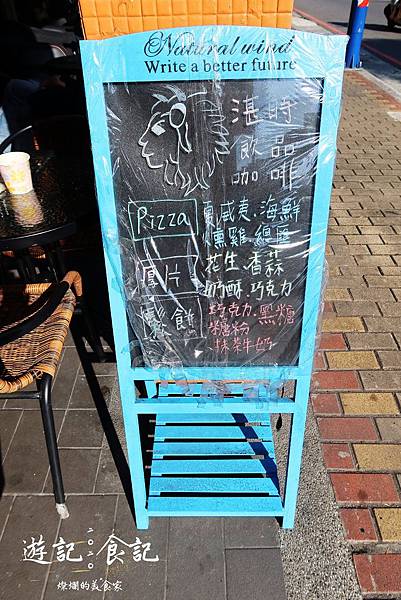 Natural wind
Write a better future
湛時
飲品
咖啡
Pizza
夏威夷.海鮮
燻雞.總匯
厚片
花生.香蒜
奶酥.巧克力
鬆餅
巧克力.黑糖
糖粉
抹茶牛奶
遊記 二〇二〇 食記
燦爛的美食家